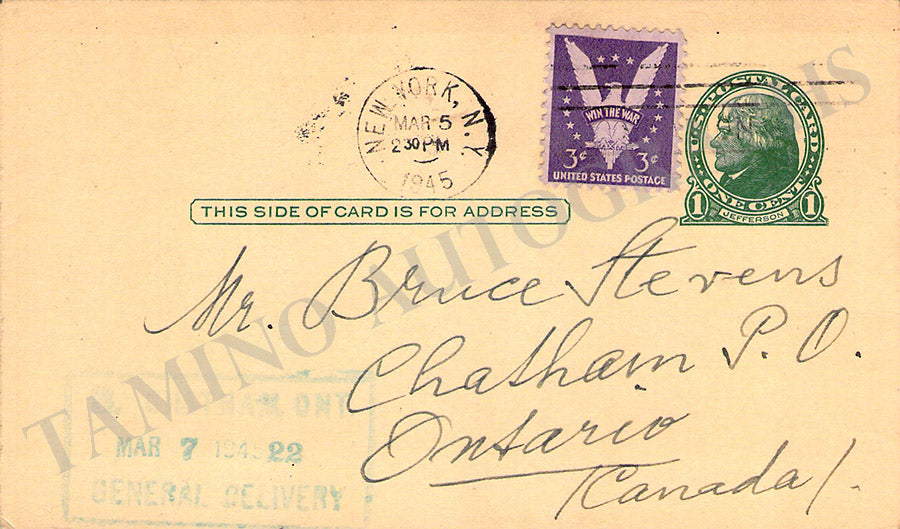 NEW YORK, N.Y.
MAR 5
2 30 PM
1945
WIN THE WAR
3¢ 3¢
UNITED STATES POSTAGE
U.S. POSTAL CARD
ONE CENT
1 JEFFERSON 1
THIS SIDE OF CARD IS FOR ADDRESS
Mr. Bruce Stevens
Chatham P. O.
Ontario
(Canada).
ONT
MAR 7 1945 22
GENERAL DELIVERY
TAMINO AUTOGRAPHS